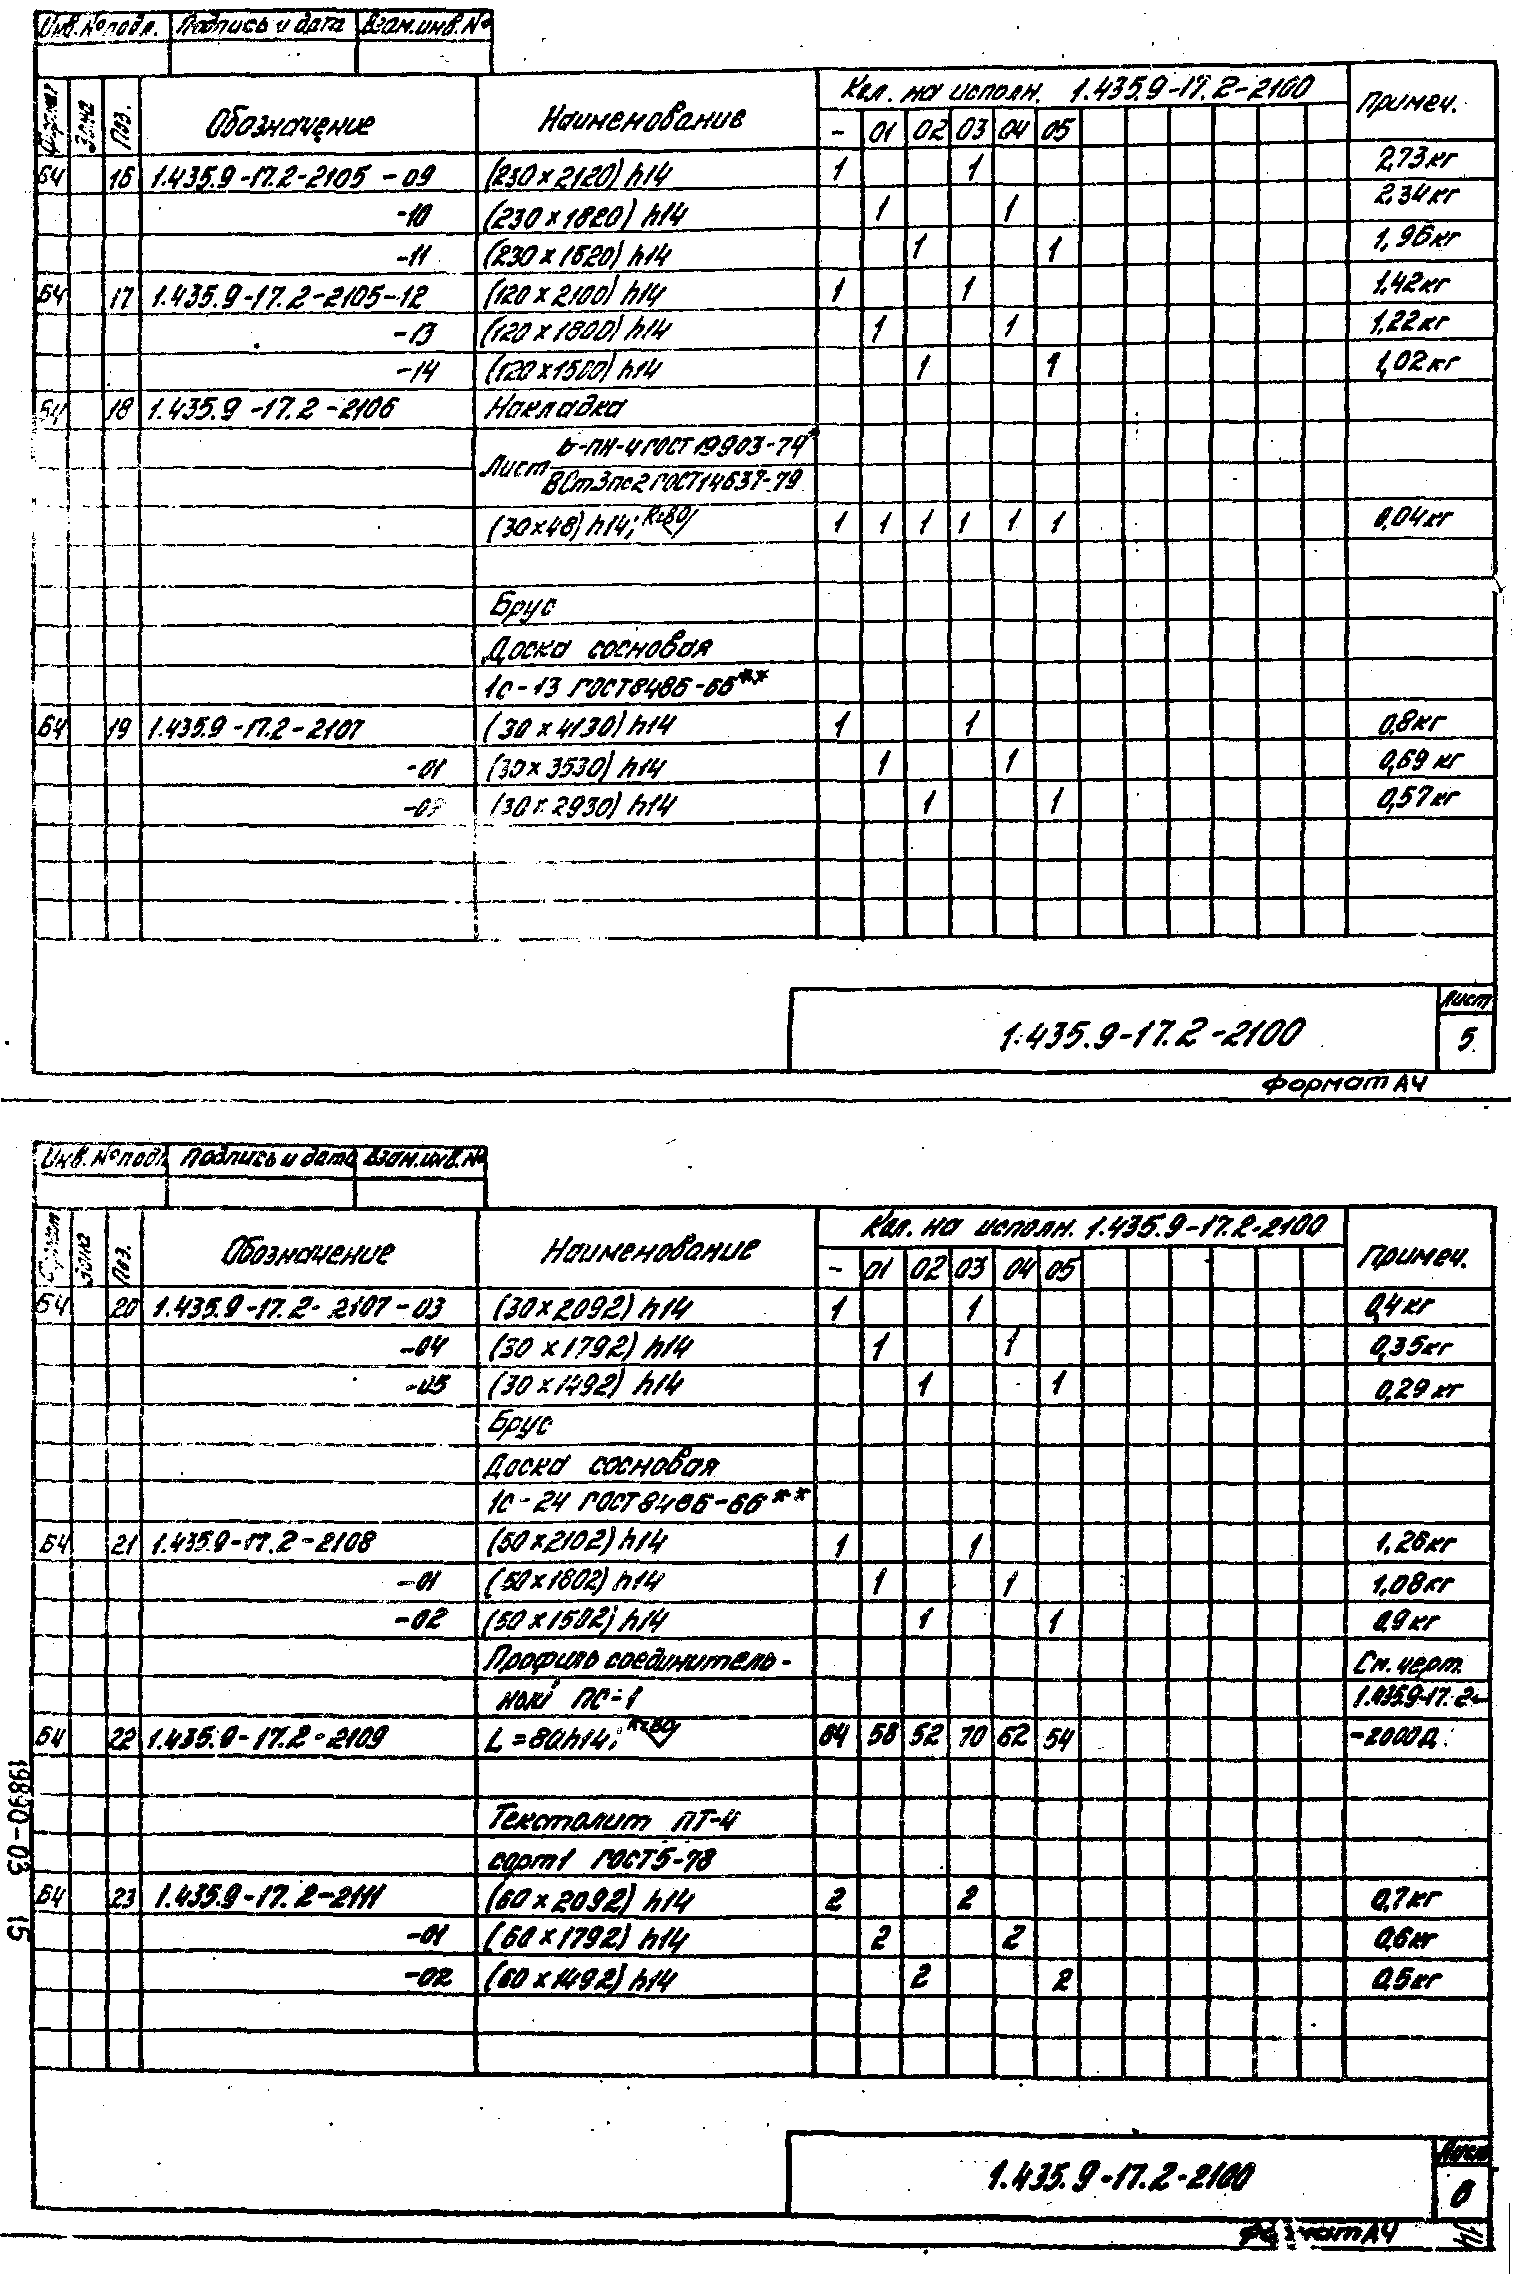 Инв. № подл. Подпись и дата Взам. инв. №
Формат Зона Поз. Обозначение Наименование Кол. на исполн. 1.435.9-17.2-2100 Примеч.
- 01 02 03 04 05
БЧ 16 1.435.9-17.2-2105 -09 (230×2120) h14 1 1 2,73кг
-10 (230×1820) h14 1 1 2,34кг
-11 (230×1520) h14 1 1 1,96кг
БЧ 17 1.435.9-17.2-2105-12 (120×2100) h14 1 1 1,42кг
-13 (120×1800) h14 1 1 1,22кг
-14 (120×1500) h14 1 1 1,02кг
БЧ 18 1.435.9-17.2-2106 Накладка
Лист Б-ПН-4 ГОСТ 19903-74*
ВСт3пс2 ГОСТ 14637-79
(30×48) h14; 1 1 1 1 1 1 0,04кг
Брус
Доска сосновая
1с-13 ГОСТ 8486-66**
БЧ 19 1.435.9-17.2-2107 (30×4130) h14 1 1 0,8кг
-01 (30×3530) h14 1 1 0,69 кг
-02 (30×2930) h14 1 1 0,57кг
1.435.9-17.2-2100 Лист
5
Формат А4
Инв. № подл. Подпись и дата Взам. инв. №
Формат Зона Поз. Обозначение Наименование Кол. на исполн. 1.435.9-17.2-2100 Примеч.
- 01 02 03 04 05
БЧ 20 1.435.9-17.2-2107-03 (30×2092) h14 1 1 0,4кг
-04 (30×1792) h14 1 1 0,35кг
-05 (30×1492) h14 1 1 0,29 кг
Брус
Доска сосновая
1с-24 ГОСТ 8486-66**
БЧ 21 1.435.9-17.2-2108 (50×2102) h14 1 1 1,26кг
-01 (50×1802) h14 1 1 1,08кг
-02 (50×1502) h14 1 1 0,9кг
Профиль соединитель- См. черт.
ной ПС-1 1.435.9-17.2-
БЧ 22 1.435.9-17.2-2109 L=80h14; 64 58 52 70 62 54 -2000Д
Текстолит ПТ-4
сорт 1 ГОСТ 5-78
БЧ 23 1.435.9-17.2-2111 (60×2092) h14 2 2 0,7кг
-01 (60×1792) h14 2 2 0,6кг
-02 (60×1492) h14 2 2 0,5кг
1.435.9-17.2-2100 Лист
6
Формат А4
14
19890-03 15